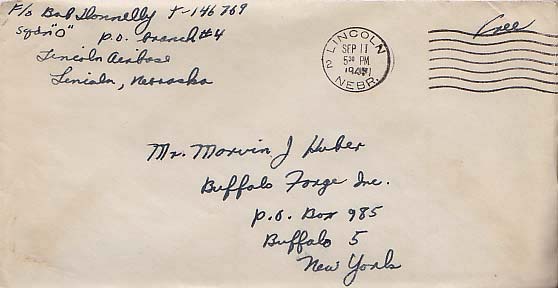 F/o Bob Donnelly T-146769
Sqdn "O"
P.O. Branch #4
Lincoln Airbase
Lincoln, Nebraska
LINCOLN
SEP 11
5 30 PM
1945
2
NEBR.
Free
Mr. Marvin J Huber
Buffalo Forge Inc.
P.O. Box 985
Buffalo 5
New York